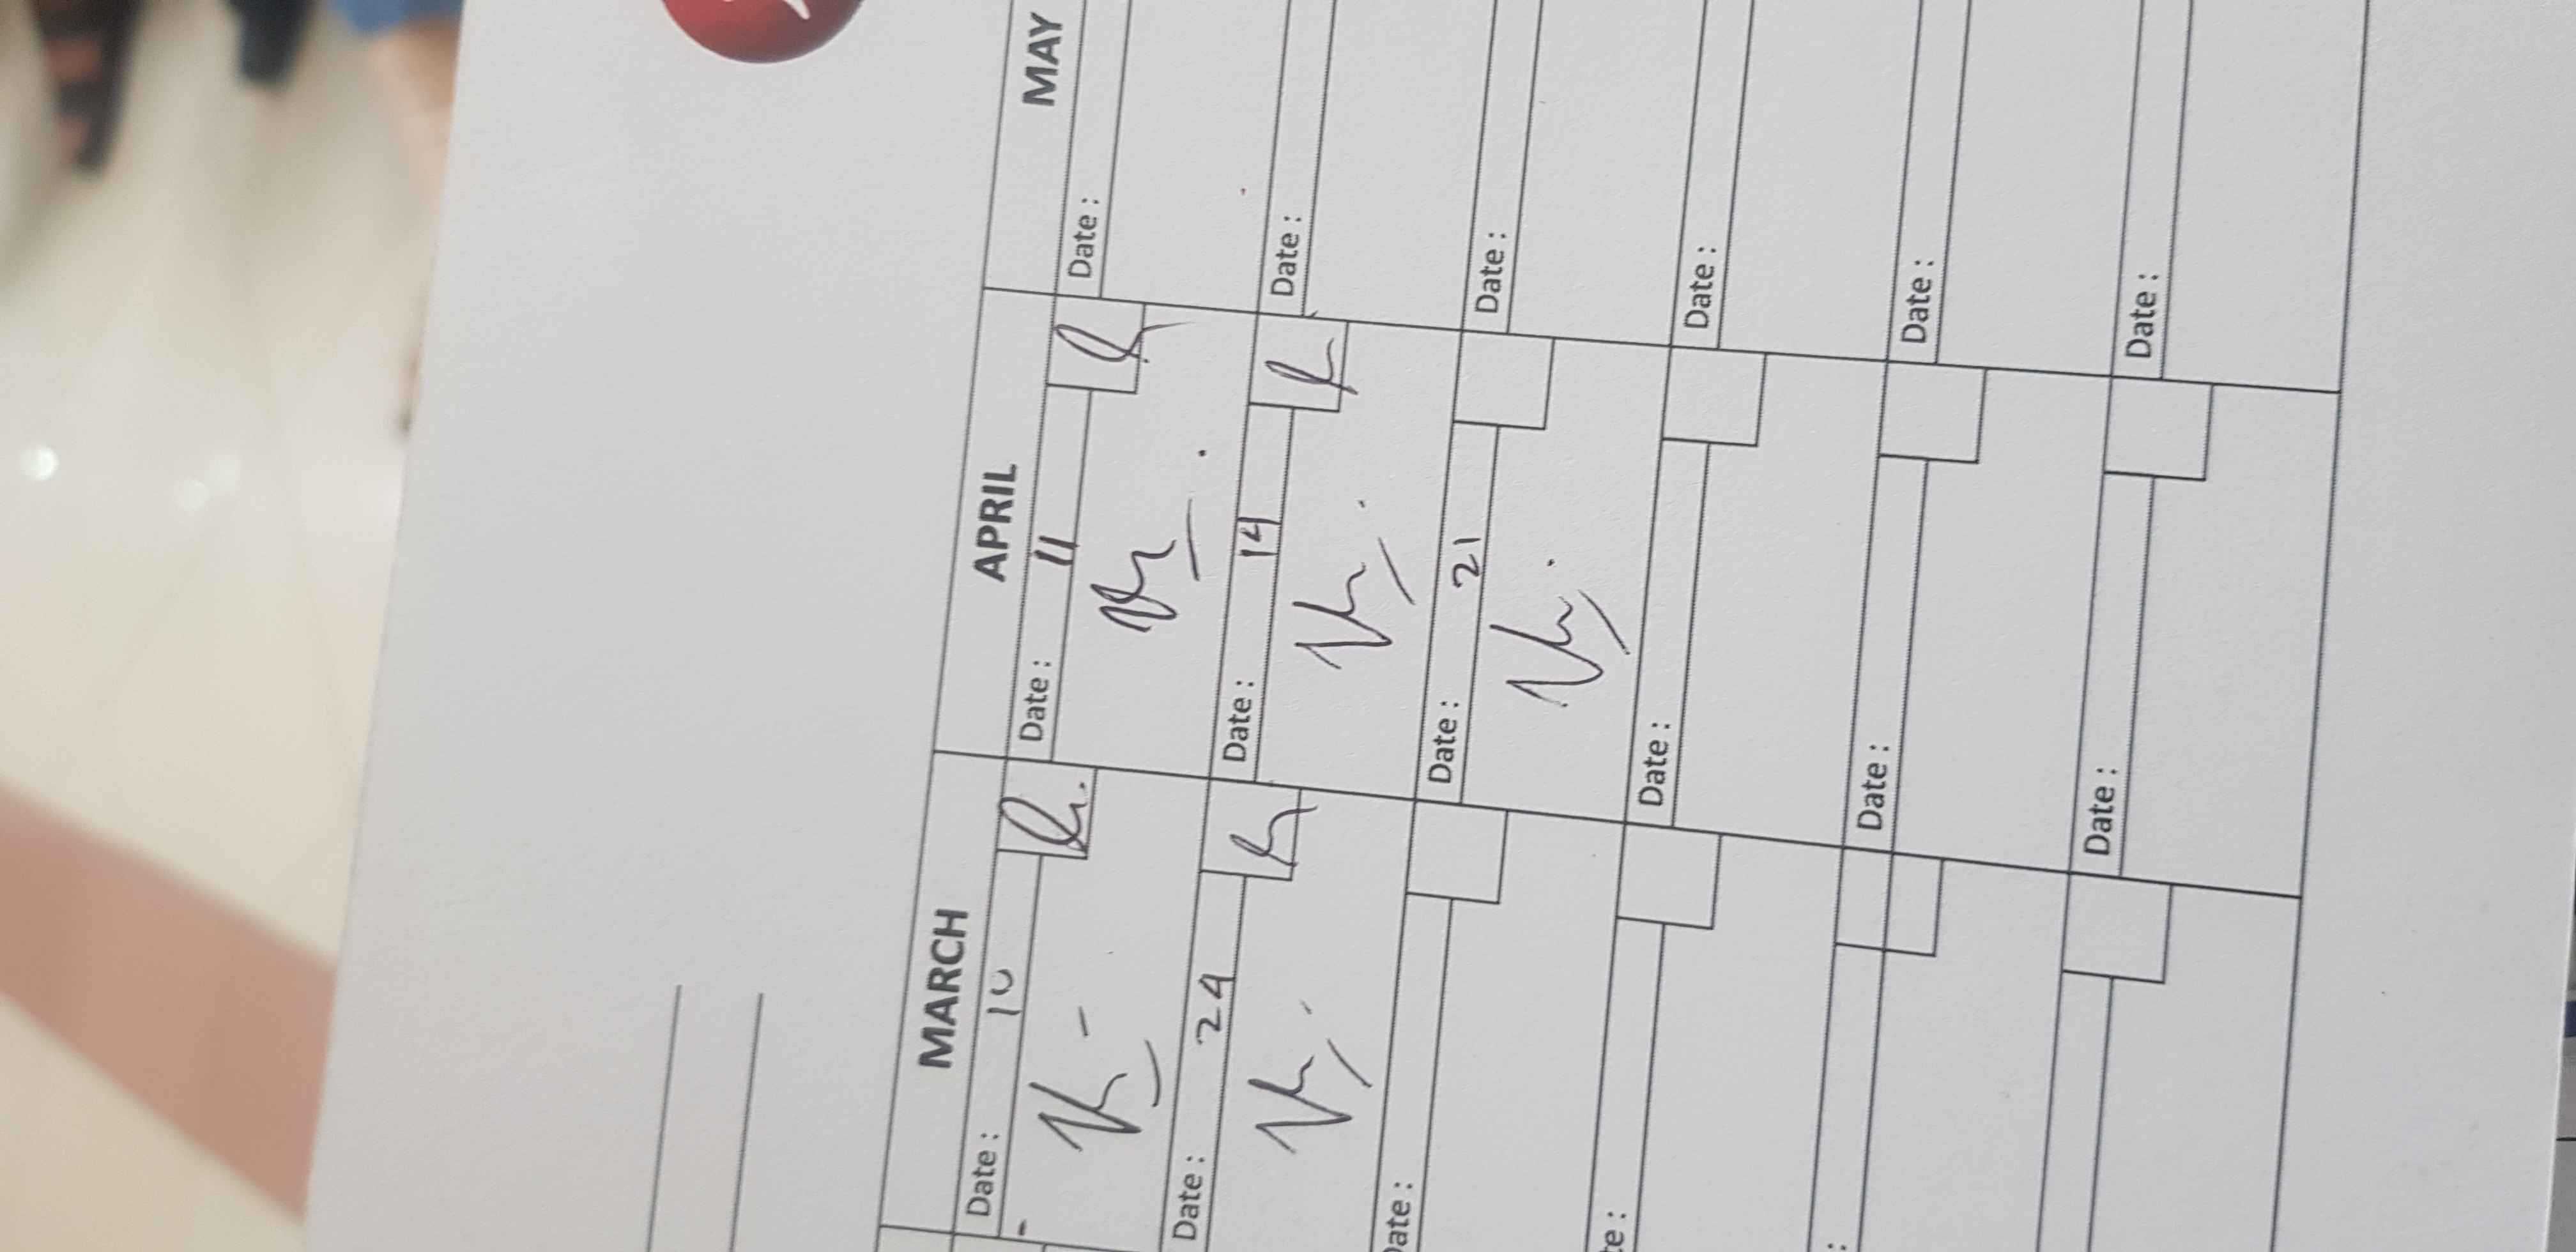 MARCH APRIL MAY
Date : 10 Date : 11 Date :
Date : 24 Date : 14 Date :
Date : Date : 21 Date :
Date : Date :
Date : Date :
Date : Date :